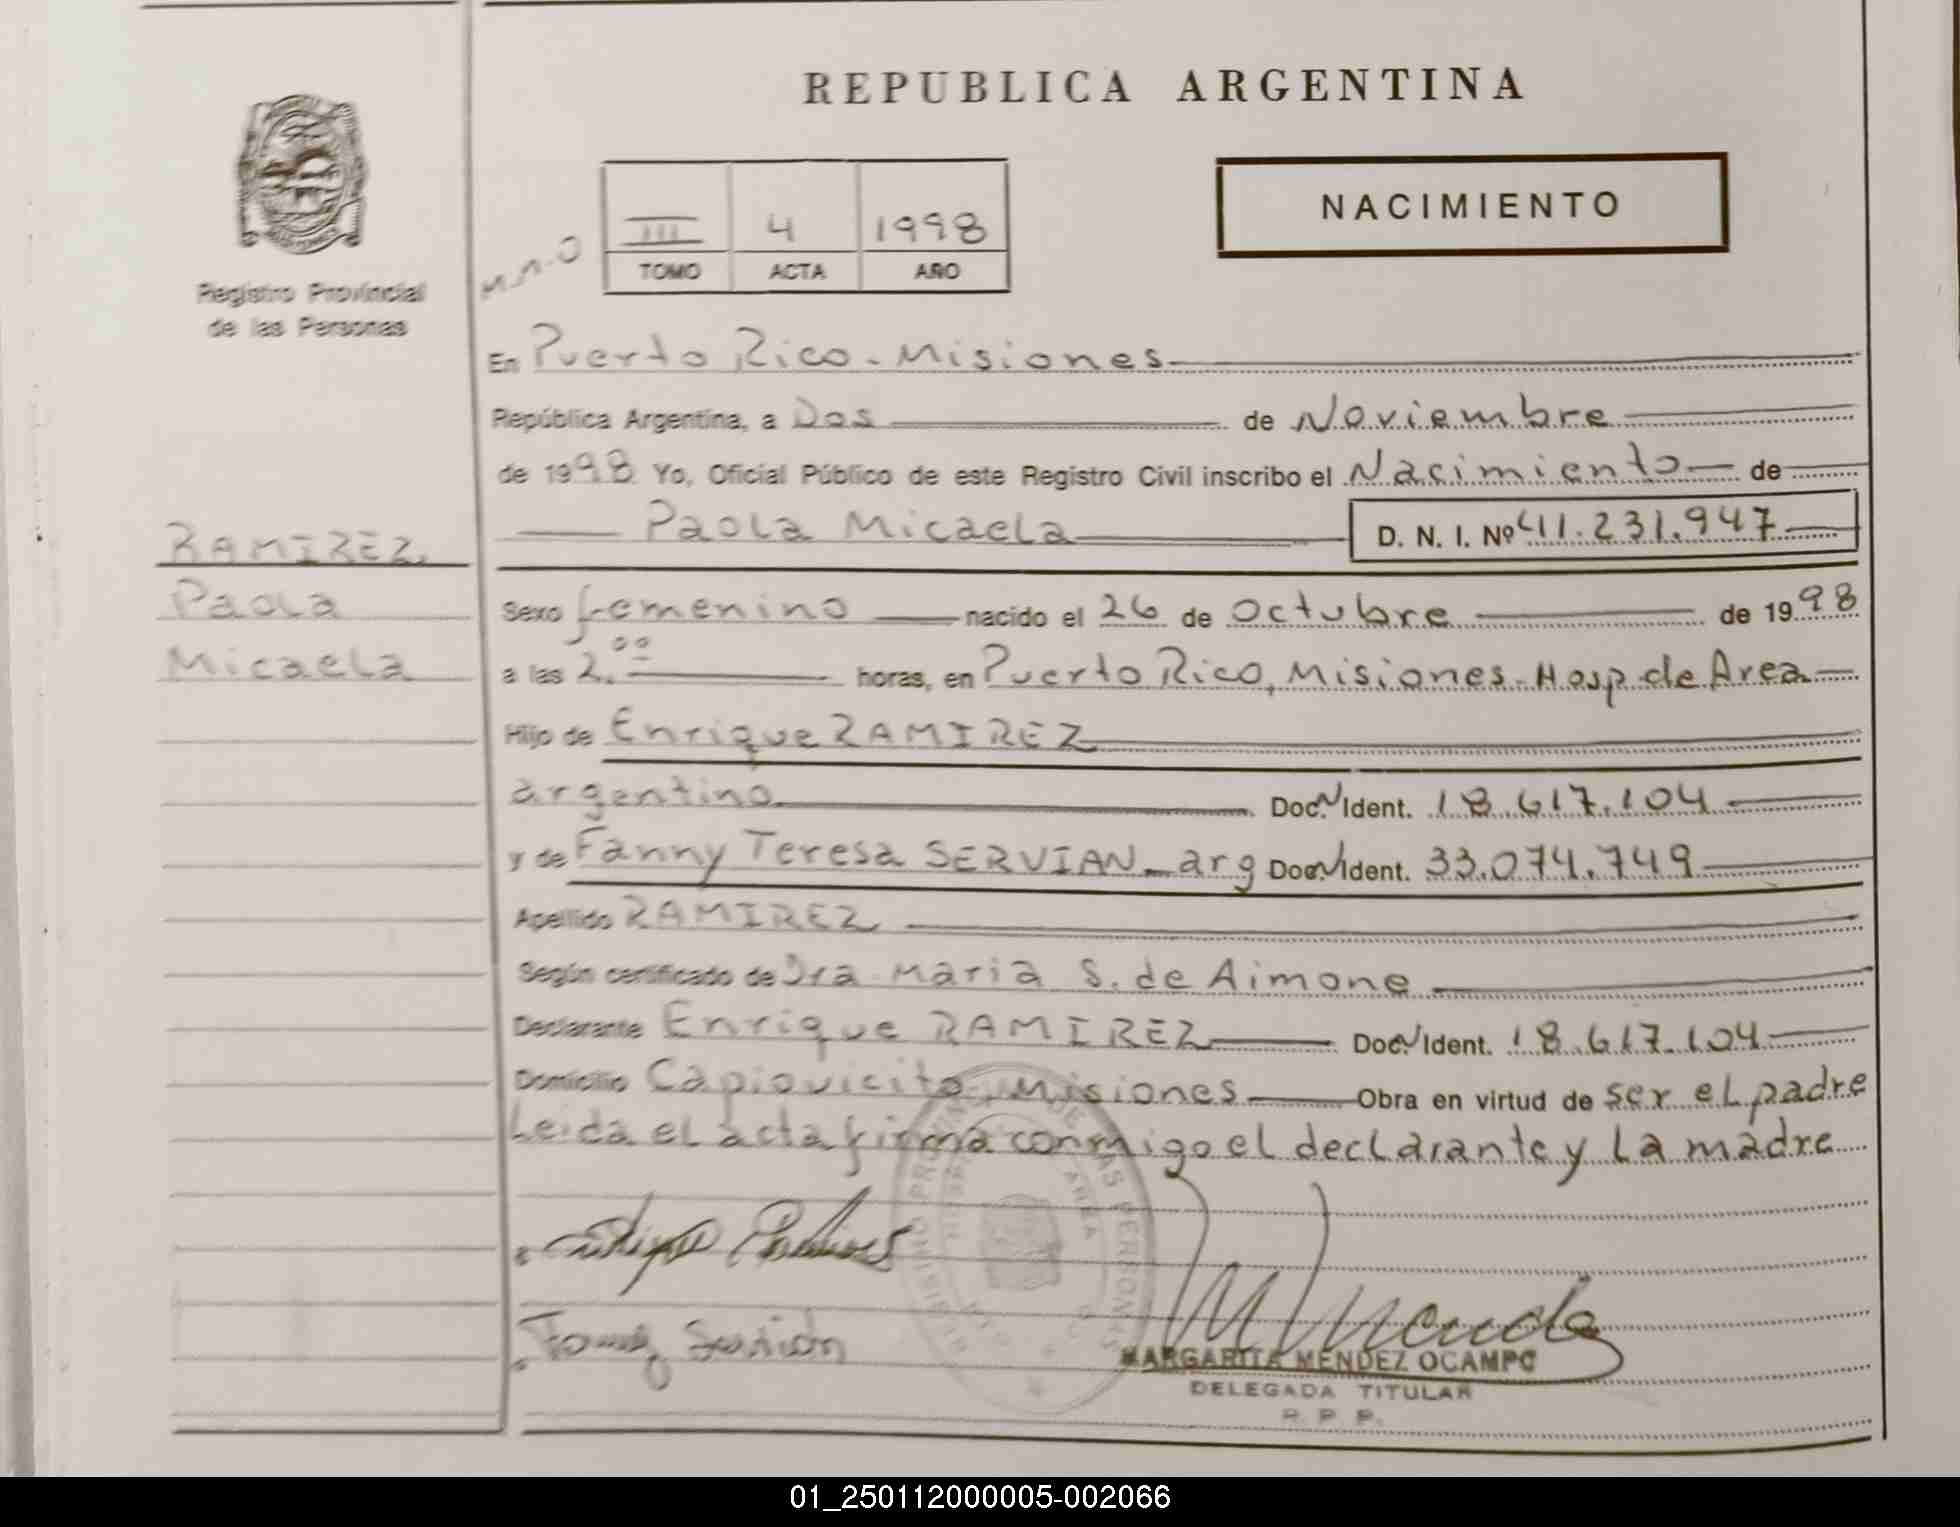 REPUBLICA ARGENTINA
NACIMIENTO
III 4 1998
TOMO ACTA AÑO
Registro Provincial
de las Personas
RAMIREZ,
Paola
Micaela
En Puerto Rico - Misiones
República Argentina, a Dos de Noviembre
de 1998 Yo, Oficial Público de este Registro Civil inscribo el Nacimiento de
Paola Micaela D. N. I. Nº 41.231.947
Sexo femenino nacido el 26 de octubre de 1998
a las 2.00 horas, en Puerto Rico, Misiones - Hosp. de Area
Hijo de Enrique RAMIREZ
argentino Doc. Ident. 18.617.104
y de Fanny Teresa SERVIAN - arg Doc. Ident. 33.074.749
Apellido RAMIREZ
Según certificado de Dra Maria S. de Aimone
Declarante Enrique RAMIREZ Doc. Ident. 18.617.104
Domicilio Capiovicito, Misiones Obra en virtud de ser el padre
Leida el acta firma conmigo el declarante y La madre
MARGARITA MENDEZ OCAMPO
DELEGADA TITULAR
R. P. P.
01_250112000005-002066